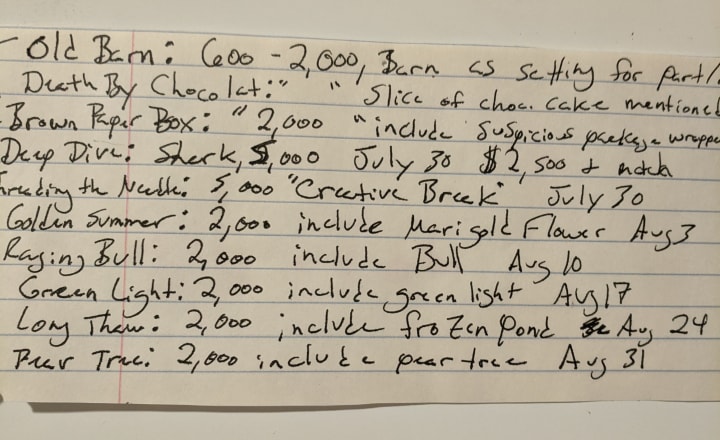 - Old Barn: 600 - 2,000, Barn as setting for part/
Death By Chocolat:" " Slice of choc. cake mentioned
Brown Paper Box: " 2,000 " include suspicious package wrappe
Deep Dive: Shark, 5,000 July 30 $2,500 + match
Threading the Needle: 5,000 "Creative Break" July 30
Golden Summer: 2,000 include Marigold Flower Aug 3
Raging Bull: 2,000 include Bull Aug 10
Green Light: 2,000 include green light Aug 17
Long Thaw: 2,000 include frozen pond Aug 24
Pear Tree: 2,000 include pear tree Aug 31